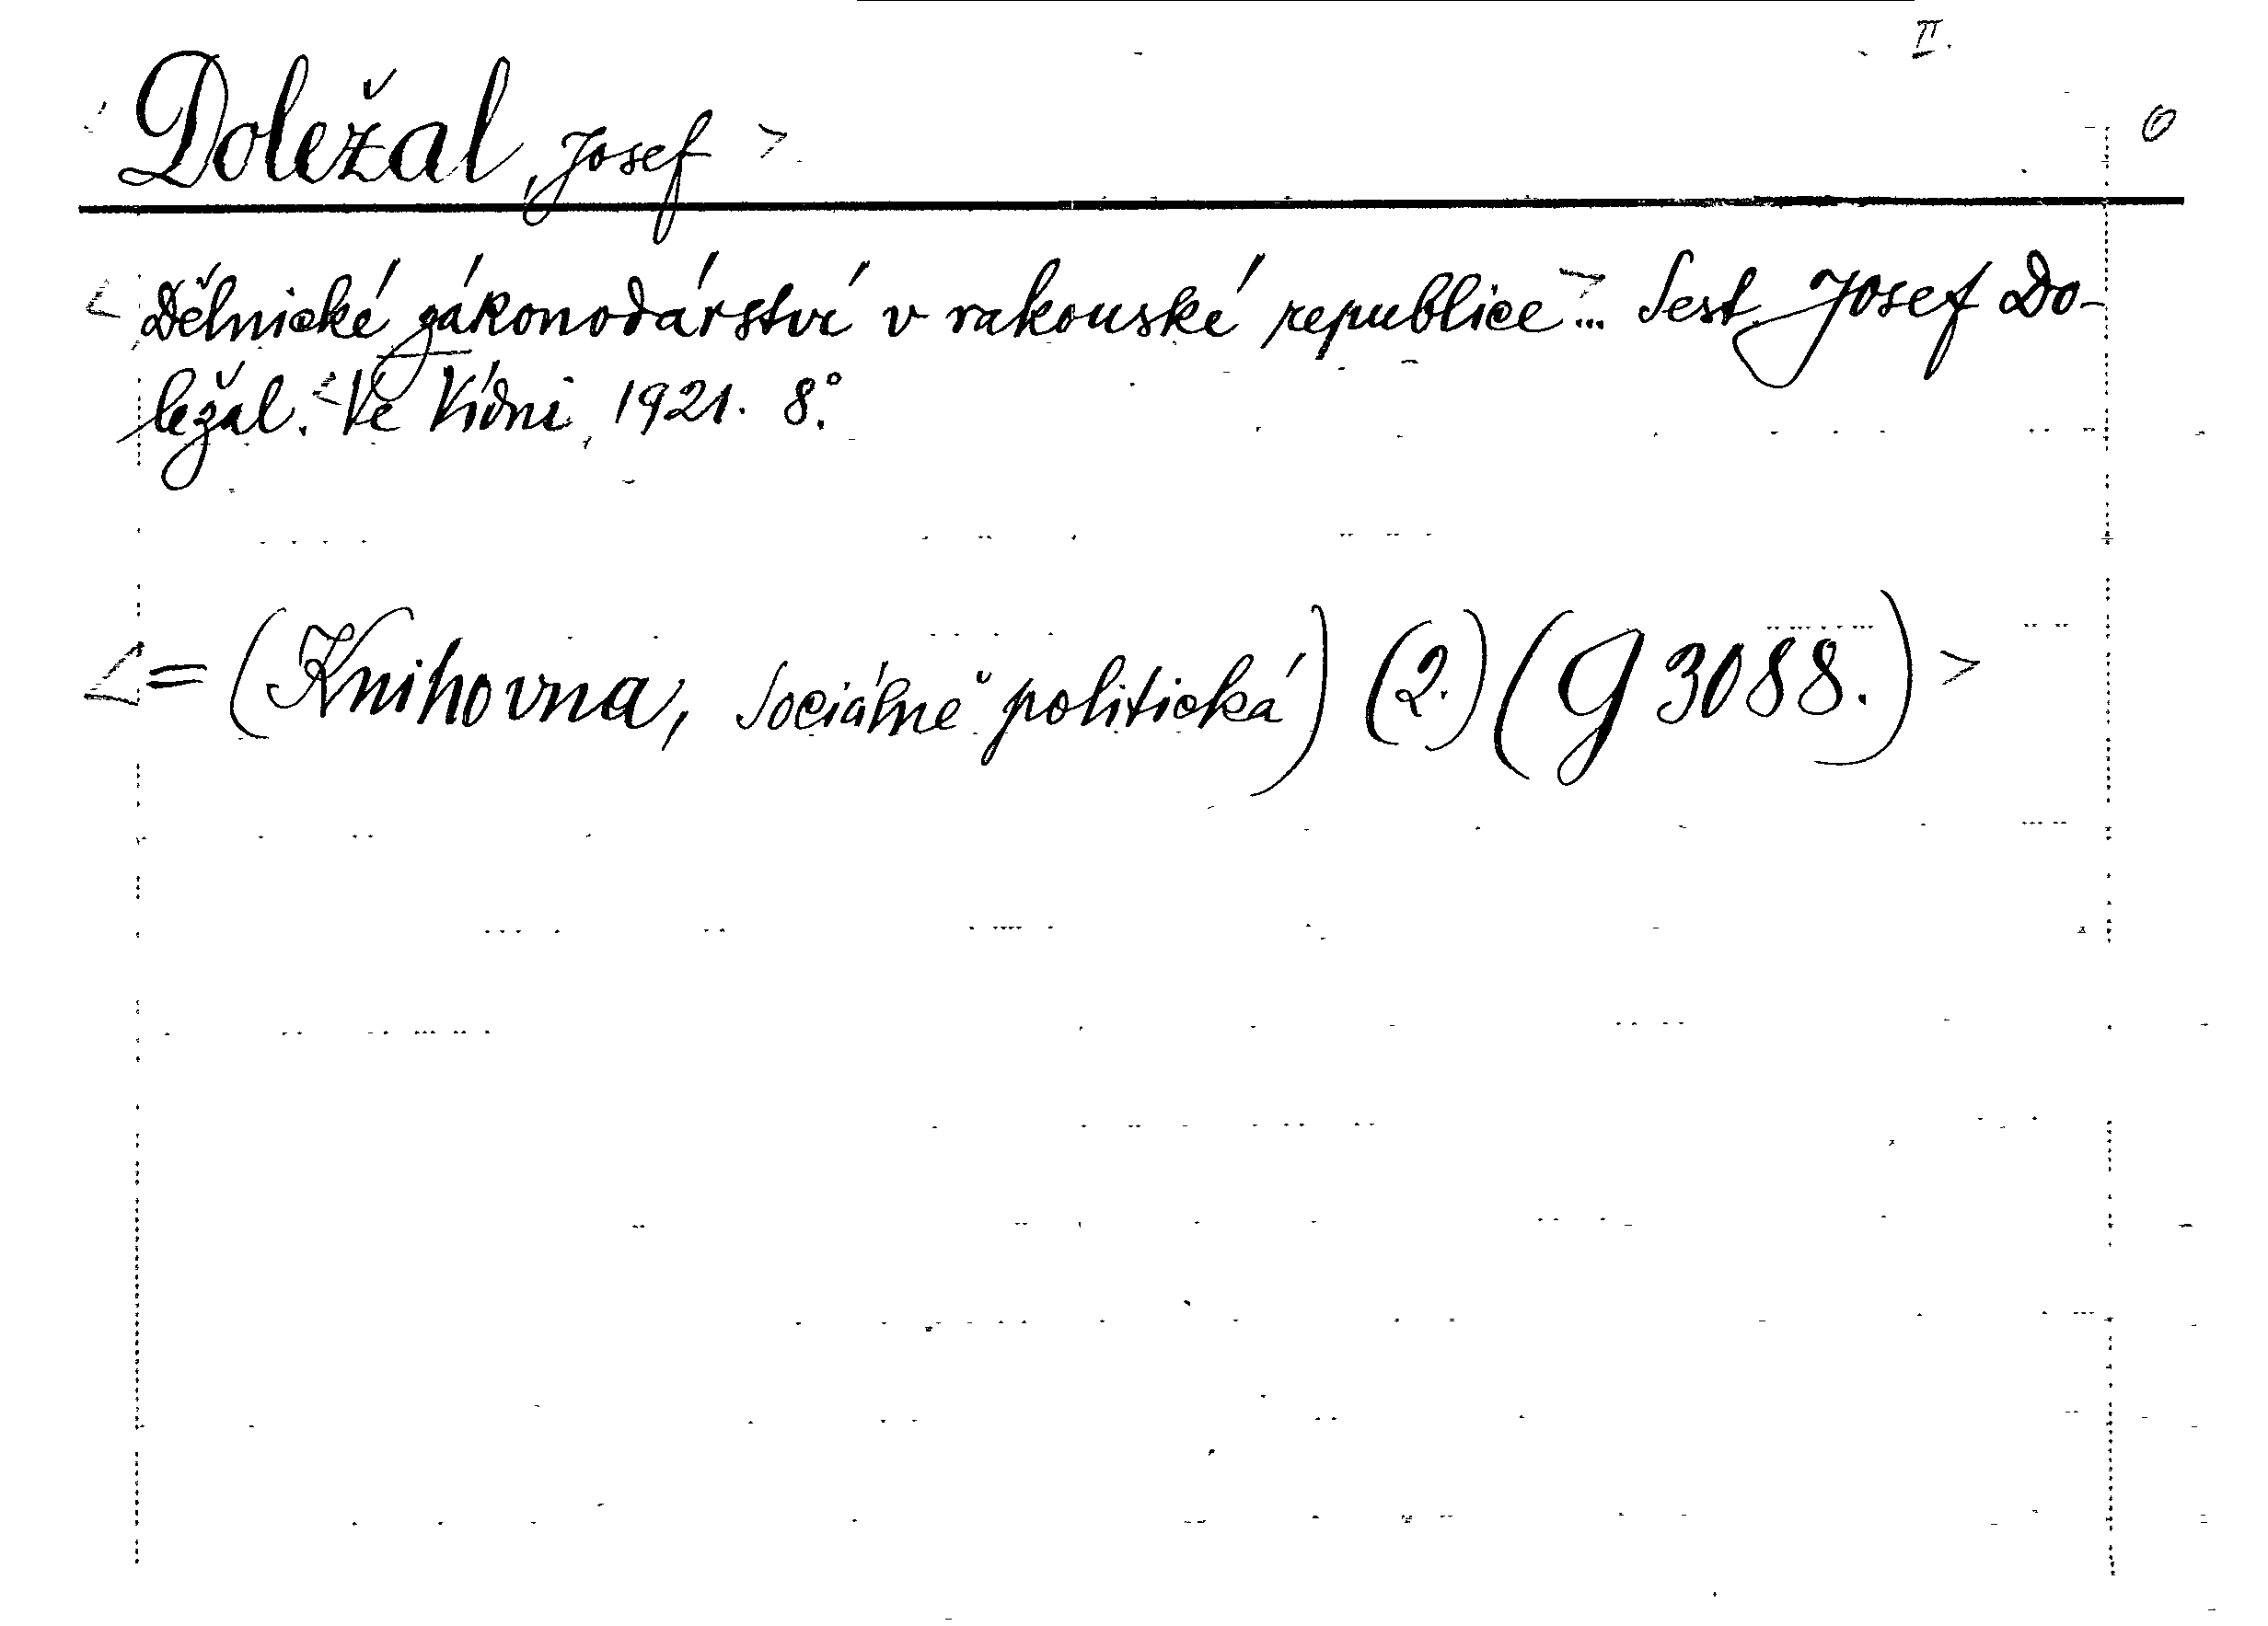 II.
< Doležal, Josef > 6
< Dělnické zákonodárství v rakouské republice > ... Sest. Josef Do-
ležal. < Ve Vídni, 1921. 8°.
< = (Knihovna, sociálně politická) (2.) (G 3088.) >